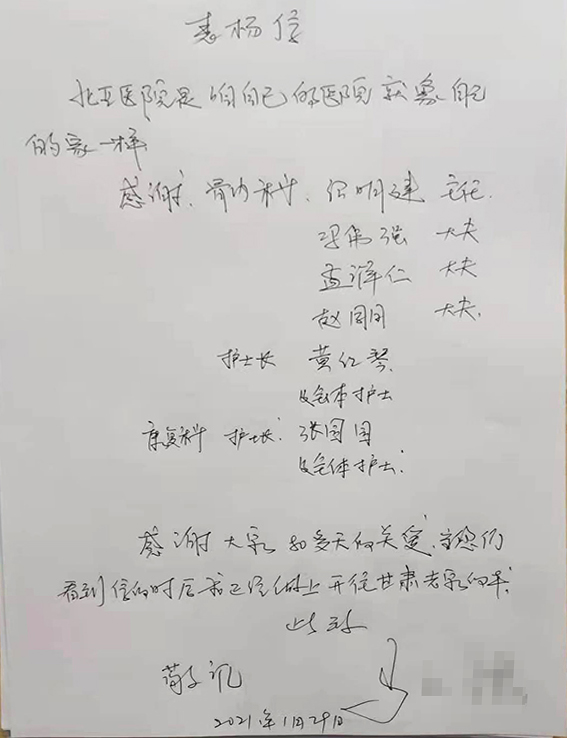 表扬信
北亚医院是咱自己的医院就象自己
的家一样
感谢、骨内科、倪明建 主任.
梁伟强 大夫
孟泽仁 大夫
赵园月 大夫.
护士长 黄红琴
及全体护士
康复科 护士长: 张园园
及全体护士:
感谢大家30多天的关爱、当您们
看到信的时后我已经坐上开往甘肃老家的车.
此致
敬礼
2021年1月29日